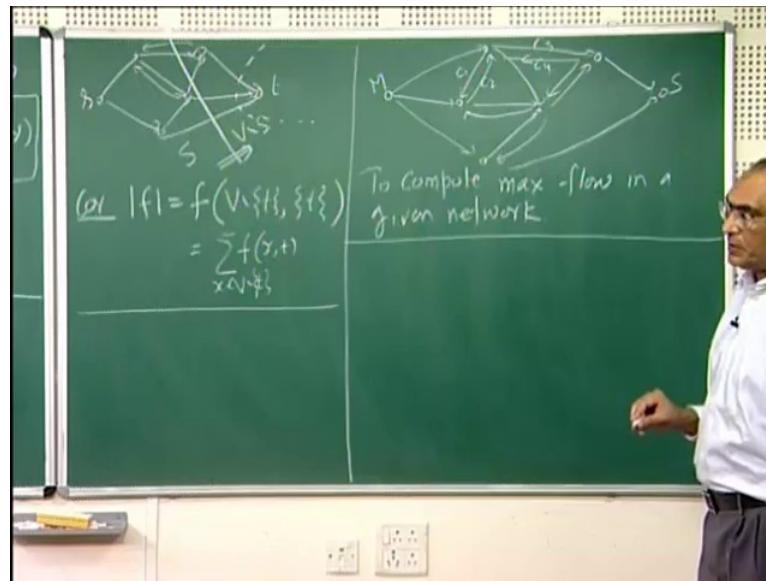 s
t
S
V\S . . .
Cor |f| = f(V\{t}, {t})
= ∑ f(x,t)
x∈V\{t}
M
C1
C2
C3
C4
S
To compute max-flow in a
given network